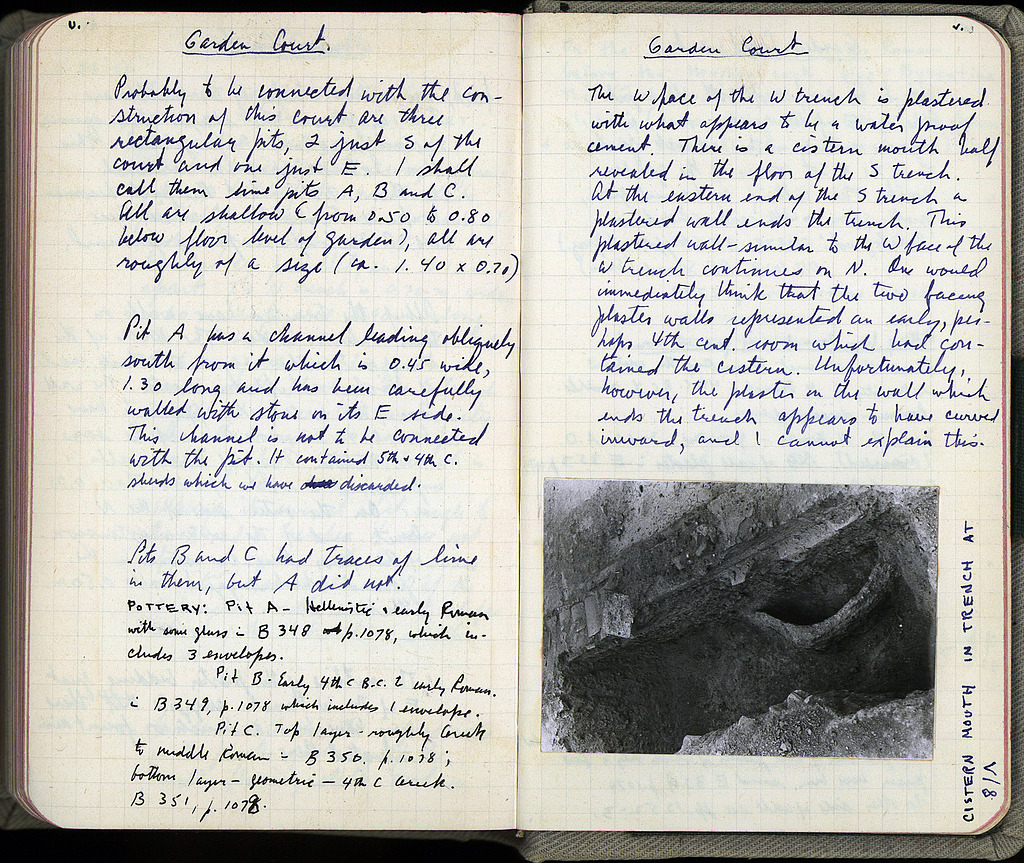 Garden Court.
Probably to be connected with the con-
struction of this court are three
rectangular pits, 2 just S of the
court and one just E. I shall
call them lime pits A, B and C.
All are shallow (from 0.50 to 0.80
below floor level of garden), all are
roughly of a size (ca. 1.40 x 0.70)
Pit A has a channel leading obliquely
south from it which is 0.45 wide,
1.30 long and has been carefully
walled with stone on its E side.
This channel is not to be connected
with the pit. It contained 5th & 4th C.
sherds which we have discarded.
Pits B and C had traces of lime
in them, but A did not.
POTTERY: Pit A - Hellenistic & early Roman
with some glass in B 348 p.1078, which in-
cludes 3 envelopes.
Pit B - Early 4th C B.C. & early Roman.
in B 349, p.1078 which includes 1 envelope.
Pit C. Top layer - roughly Greek
to middle Roman - B 350, p.1078;
bottom layer - geometric - 4th C Greek.
B 351, p.1078.
Garden Court
The W face of the W trench is plastered
with what appears to be a water proof
cement. There is a cistern mouth half
revealed in the floor of the S trench.
At the eastern end of the S trench a
plastered wall ends the trench. This
plastered wall - similar to the W face of the
W trench continues on N. One would
immediately think that the two facing
plaster walls represented an early, per-
haps 4th cent. room which had con-
tained the cistern. Unfortunately,
however, the plaster on the wall which
ends the trench appears to have curved
inward, and I cannot explain this.
CISTERN MOUTH IN TRENCH AT
8/Λ